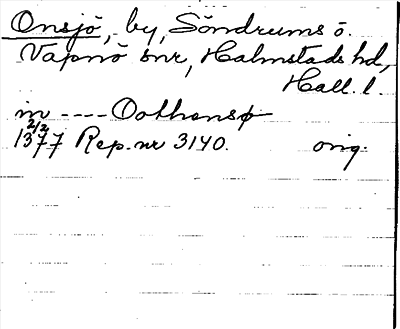 Onsjö, by, Söndrums s.
Vapnö snr, Halmstads hd,
Hall. l.
in ---- Oothensø
2/2
1377 Rep. nr 3140. orig.